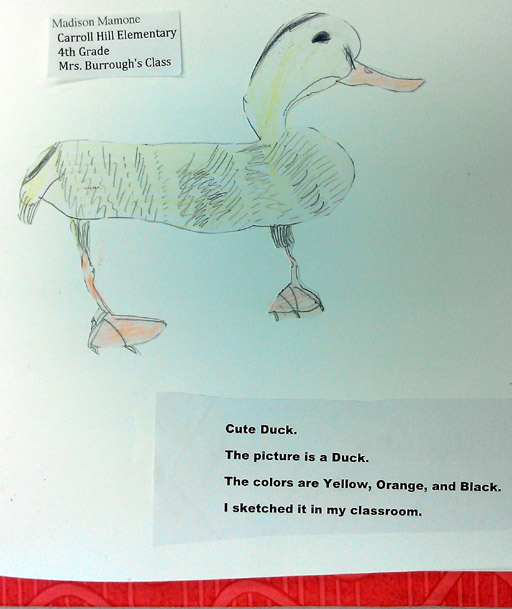 Madison Mamone
Carroll Hill Elementary
4th Grade
Mrs. Burrough's Class
Cute Duck.
The picture is a Duck.
The colors are Yellow, Orange, and Black.
I sketched it in my classroom.